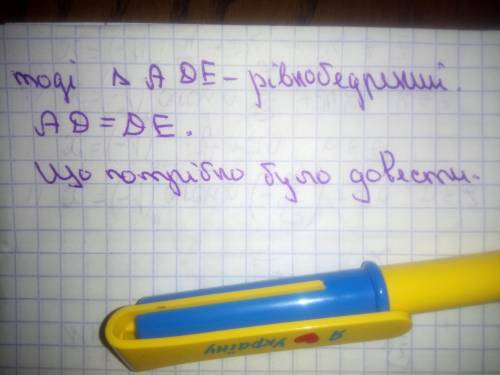 тоді Δ ADE - рівнобедрений.
AD = DE.
Що потрібно було довести.
Я ❤ Україну